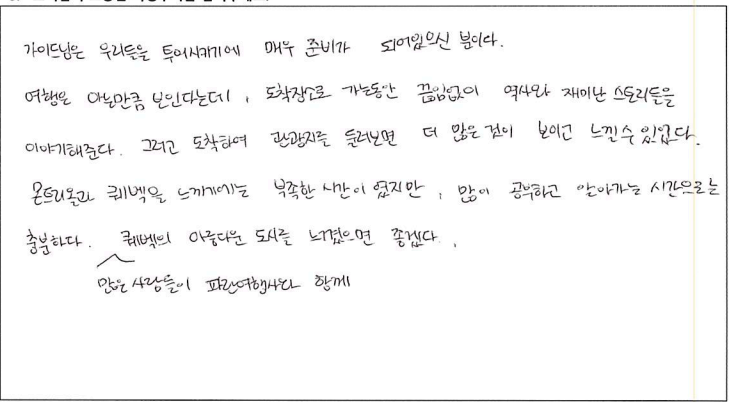 가이드님은 우리들을 투어시키기에 매우 준비가 되어있으신 분이다.
여행은 아는만큼 보인다는데, 도착장소로 가는동안 끊임없이 역사와 재미난 스토리들을
이야기해준다. 그리고 도착하여 관광지를 둘러보면 더 많은 것이 보이고 느낄수 있었다.
몬트리올과 퀘벡을 느끼기에는 부족한 시간이 였지만, 많이 공부하고 알아가는 시간으로는
충분하다. 퀘벡의 아름다운 도시를 느꼈으면 좋겠다.
많은 사람들이 파란여행사와 함께